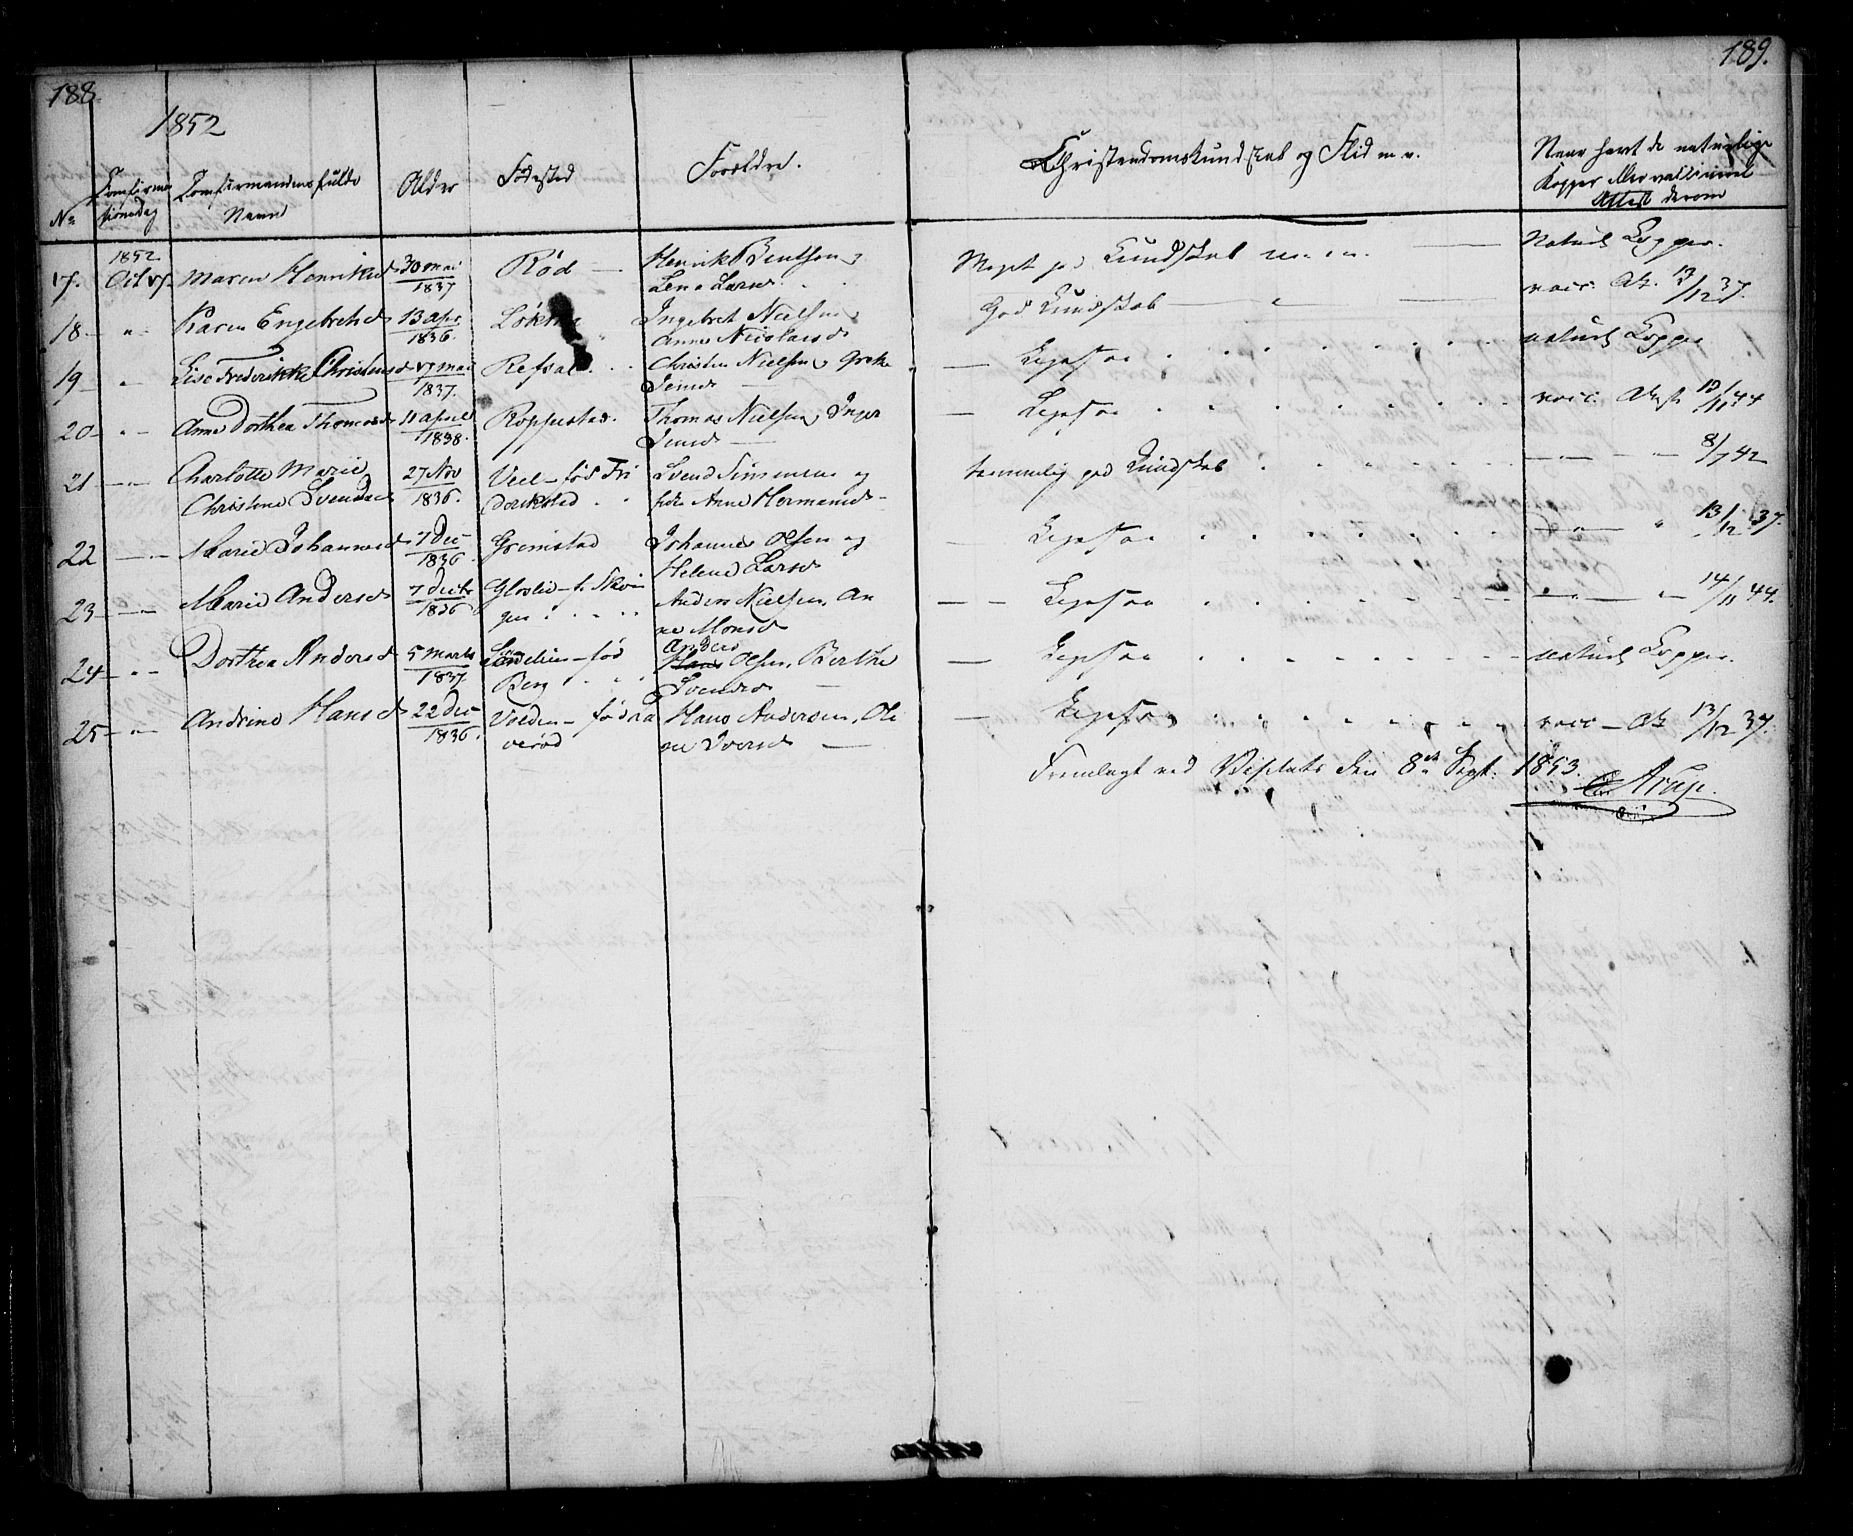 188
189.
1852
No
Confirma
tionsdag
Confirmandens fulde
Navn
Alder
Fødested
Forældre.
Christendomskundskab og Flid m. v.
Naar havt de naturlige
Kopper eller vaccineret
Attest derom
1852
17. Oct 17. Maren Henriksd 30 mai 1837 Rød Henrik Bentsen,
Lena Larsd.
Meget god Kundskab
Naturl. Kopper.
18 - " - Karen Engebretsd 13 apr 1836. Ingebret Nielsen,
Anne Nicolaisd
God Kundskab
vacc. At. 13/12 37.
19 - " Lise Frederikke Christensd 17 mai 1837. Refsal. Christen Nielsen, Grethe
Jensd
Ligesaa
naturl. Kopper
20 - " - Anne Dorthea Thomasd 11 april 1838. Roppestad. Thomas Nielsen, Inger
Jensd
Ligesaa
vacc. Attest 12/11 44
21 - " - Charlotte Marie 27 Nov 1836. Veel - fød Fri
Christine Svendsd
drikstad. Svend Simmensen og
Anne Hermansd -
temmelig god Kundskab
8/7 42
22 - " - Marie Johannesd 7 Dec 1836. Gremstad Johannes Olsen og
Helene Larsd
Ligesaa
- " - " 13/12 37.
23 - " - Marie Andersd 7 Decbr 1836 - f. Skovin
gen Anders Nielsen, An
ne Monsd
Ligesaa
- " - " 14/11 44.
24 - " - Dorthea Andersd 5 Marts 1837. - fød
Berg Anders
Hans Olsen, Berthe
Svendsd
Ligesaa
naturl. Kopper.
25 - " - Andrine Hansd 22 Dec 1836. Volden - fød Raa
nerød Hans Andersen, Ole
ne Iversd
Ligesaa
vacc - At. 13/12 37.
Fremlagt ved Visitats den 8de Sept. 1853.
Arup.